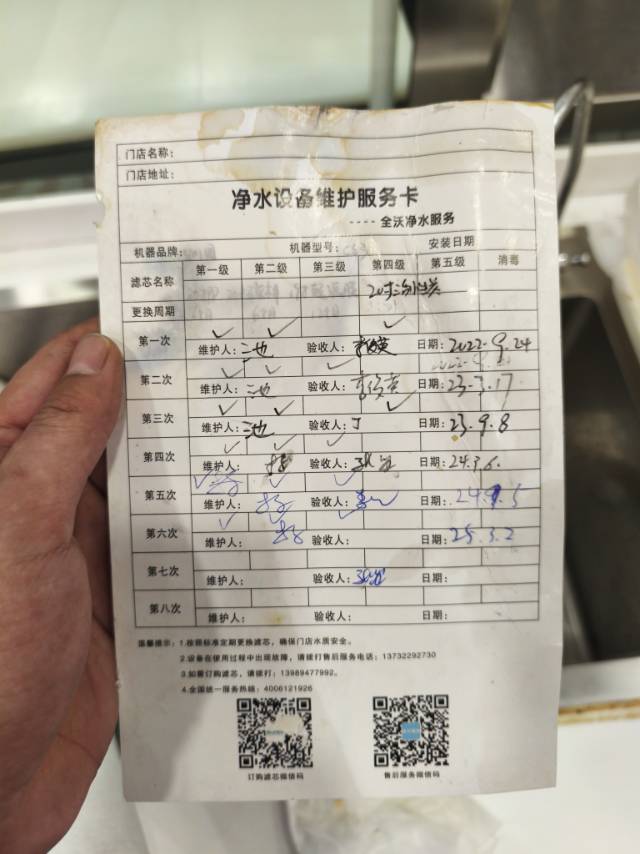 门店名称：
门店地址：
净水设备维护服务卡
---- 全沃净水服务
机器品牌： 机器型号： 安装日期
滤芯名称 第一级 第二级 第三级 第四级 第五级 消毒
20寸
更换周期
第一次 ✓ ✓ ✓
维护人：池 验收人： 日期：2022.9.24
第二次 ✓ ✓ ✓
维护人：池 验收人： 日期：23.3.17
第三次 ✓ ✓ ✓
维护人：池 验收人：丁 日期：23.9.8
第四次 ✓ ✓ ✓
维护人： 验收人： 日期：24.3.6.
第五次 ✓ ✓ ✓
维护人： 验收人： 日期：24.9.5
第六次 ✓ ✓ ✓
维护人： 验收人： 日期：25.3.2
第七次
维护人： 验收人： 日期：
第八次
维护人： 验收人： 日期：
温馨提示：1.按照标准定期更换滤芯，确保门店水质安全。
2.设备在使用过程中出现故障，请拨打售后服务电话：13732292730
3.如需订购滤芯，请拨打：13989477992。
4.全国统一服务热线：4006121926
订购滤芯微信码 售后服务微信码